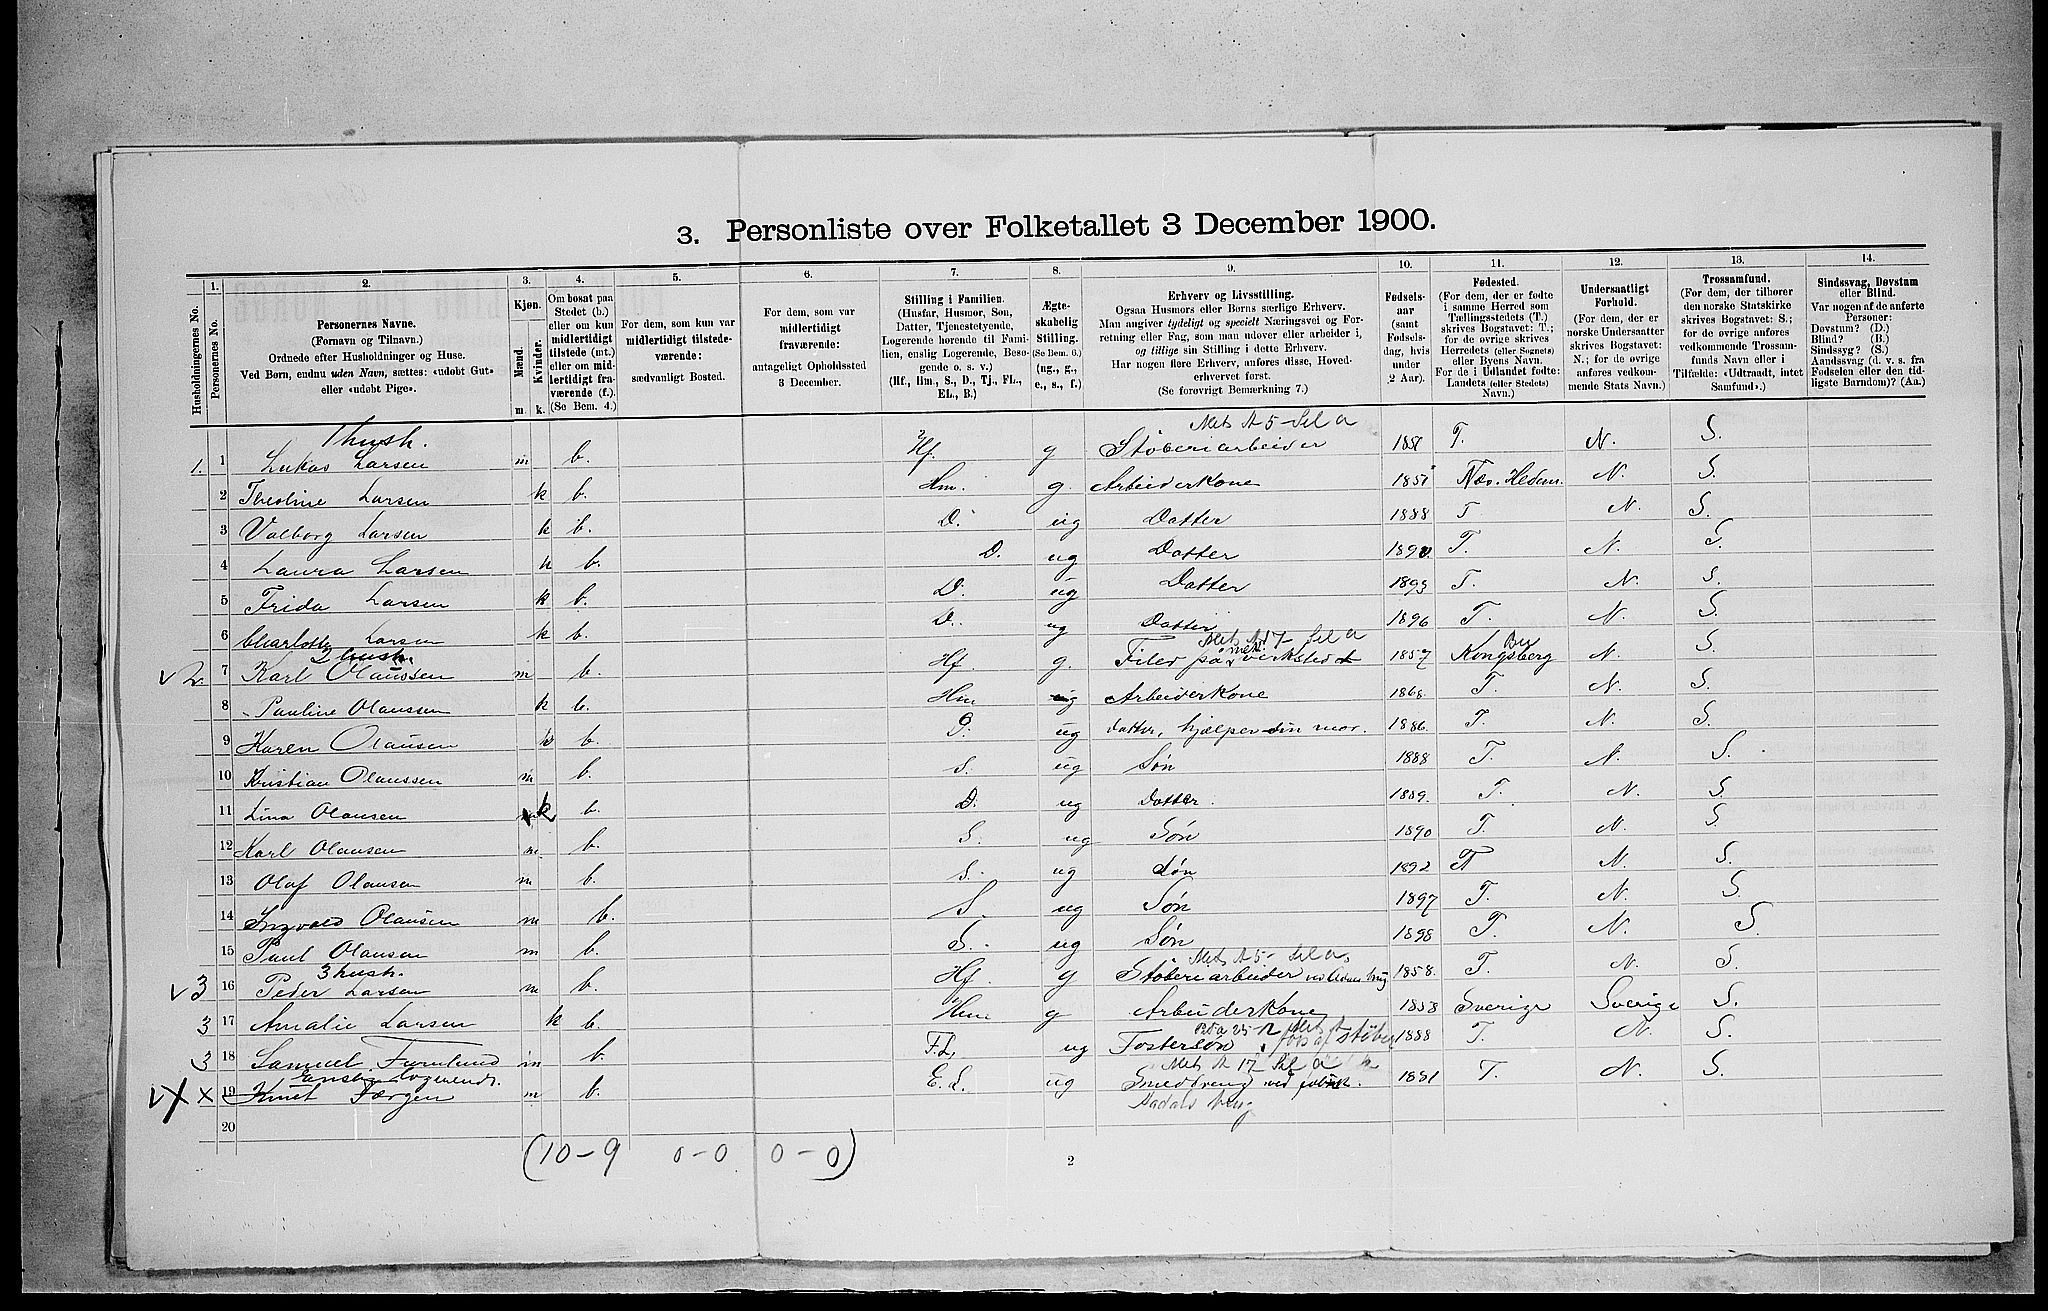 3. Personliste over Folketallet 3 December 1900.
1. 2. 3. 4. 5. 6. 7. 8. 9. 10. 11. 12. 13. 14.
Husholdningernes No.
Personernes No.
Personernes Navne.
(Fornavn og Tilnavn.)
Ordnede efter Husholdninger og Huse.
Ved Børn, endnu uden Navn, sættes: «udøbt Gut»
eller «udøbt Pige».
Kjøn.
Mænd.
Kvinder.
m. k.
Om bosat paa
Stedet (b.)
eller om kun
midlertidigt
tilstede (mt.)
eller om mid-
lertidigt fra-
værende (f.).
(Se Bem. 4.)
For dem, som kun var
midlertidigt tilstede-
værende:
sædvanligt Bosted.
For dem, som var
midlertidigt
fraværende:
antageligt Opholdssted
3 December.
Stilling i Familien.
(Husfar, Husmor, Søn,
Datter, Tjenestetyende,
Logerende hørende til Fami-
lien, enslig Logerende, Besø-
gende o. s. v.)
(Hf., Hm., S., D., Tj., FL.,
EL., B.)
Ægte-
skabelig
Stilling.
(Se Bem. 6.)
(ug., g.,
e., s., f.)
Erhverv og Livsstilling.
Ogsaa Husmors eller Børns særlige Erhverv.
Man angiver tydeligt og specielt Næringsvei og For-
retning eller Fag, som man udover eller arbeider i,
og tillige sin Stilling i dette Erhverv.
Har nogen flere Erhverv, anføres disse, Hoved-
erhvervet først.
(Se forøvrigt Bemærkning 7.)
Fødsels-
aar
(samt
Fødsels-
dag, hvis
under
2 Aar).
Fødested.
(For dem, der er fødte
i samme Herred som
Tællingsstedets (T.)
skrives Bogstavet: T.;
for de øvrige skrives
Herredets (eller Sognets)
eller Byens Navn.
For de i Udlandet fødte:
Landets (eller Stedets)
Navn.)
Undersaatligt
Forhold.
(For dem, der er
norske Undersaatter
skrives Bogstavet:
N.; for de øvrige
anføres vedkom-
mende Stats Navn.)
Trossamfund.
(For dem, der tilhører
den norske Statskirke
skrives Bogstavet: S.;
for de øvrige anføres
vedkommende Trossam-
funds Navn eller i
Tilfælde: «Udtraadt, intet
Samfund».)
Sindssvag, Døvstum
eller Blind.
Var nogen af de anførte
Personer:
Døvstum? (D.)
Blind? (B.)
Sindssyg? (S.)
Aandssvag (d. v. s. fra
Fødselen eller den tid-
ligste Barndom)? (Aa.)
1 hush. Met A 5 - Sil a
1. 1 Lukas Larsen m b. Hf. g Støberiarbeider 1851 T. N. S.
2 Theoline Larsen k b. Hm. g. Arbeiderkone 1851 Næs. Hedem. N. S.
3 Valborg Larsen k b. D. ug Datter 1888 T N. S.
4 Laura Larsen k b. D. ug Datter 1890. T. N. S.
5 Frida Larsen k b. D. ug Datter 1893 T. N. S.
6 Charlotte Larsen k b. D. ug Datter 1896 T. N. S.
2 hush. Met A 7 - Sil a
v 2 7 Karl Olaussen m b. Hf g. Filer på mek. verksted 1857 Kongsberg By N. S.
8 Pauline Olaussen k b. Hm g Arbeiderkone 1868. T. N. S.
9 Karen Olausen k b. D. ug datter, hjælper sin mor. 1886. T. N. S.
10 Kristian Olaussen m b. S. ug Søn 1888 T. N. S.
11 Lina Olausen k b. D. ug Datter. 1889. T. N. S
12 Karl Olausen m. b. S. ug Søn 1890 T. N. S.
13 Olaf Olausen m b. S. ug søn 1892 T N. S.
14 Ingvald Olausen m b. S. ug Søn 1897 T. N. S.
15 Paul Olausen m b. S. ug Søn 1898 T. N. S.
3 hush. Met A 5 - Sil a.
v 3 16 Peder Larsen m b. Hf. g Støberiarbeider 1858. T. N. S.
3 17 Amalie Larsen k b. Hm g Arbeiderkone 1858 Sverige Sverige S.
3 18 Samuel m b. F.L. ug Fostersøn, fors af støber 1888 T. N. S.
Enslig logerende. Met A 17 Sil a
v X x 19 Knut m b. E.L. ug Smeddreng ved 1881 T. N. S.
20
(10 - 9 0 - 0 0 - 0)
2